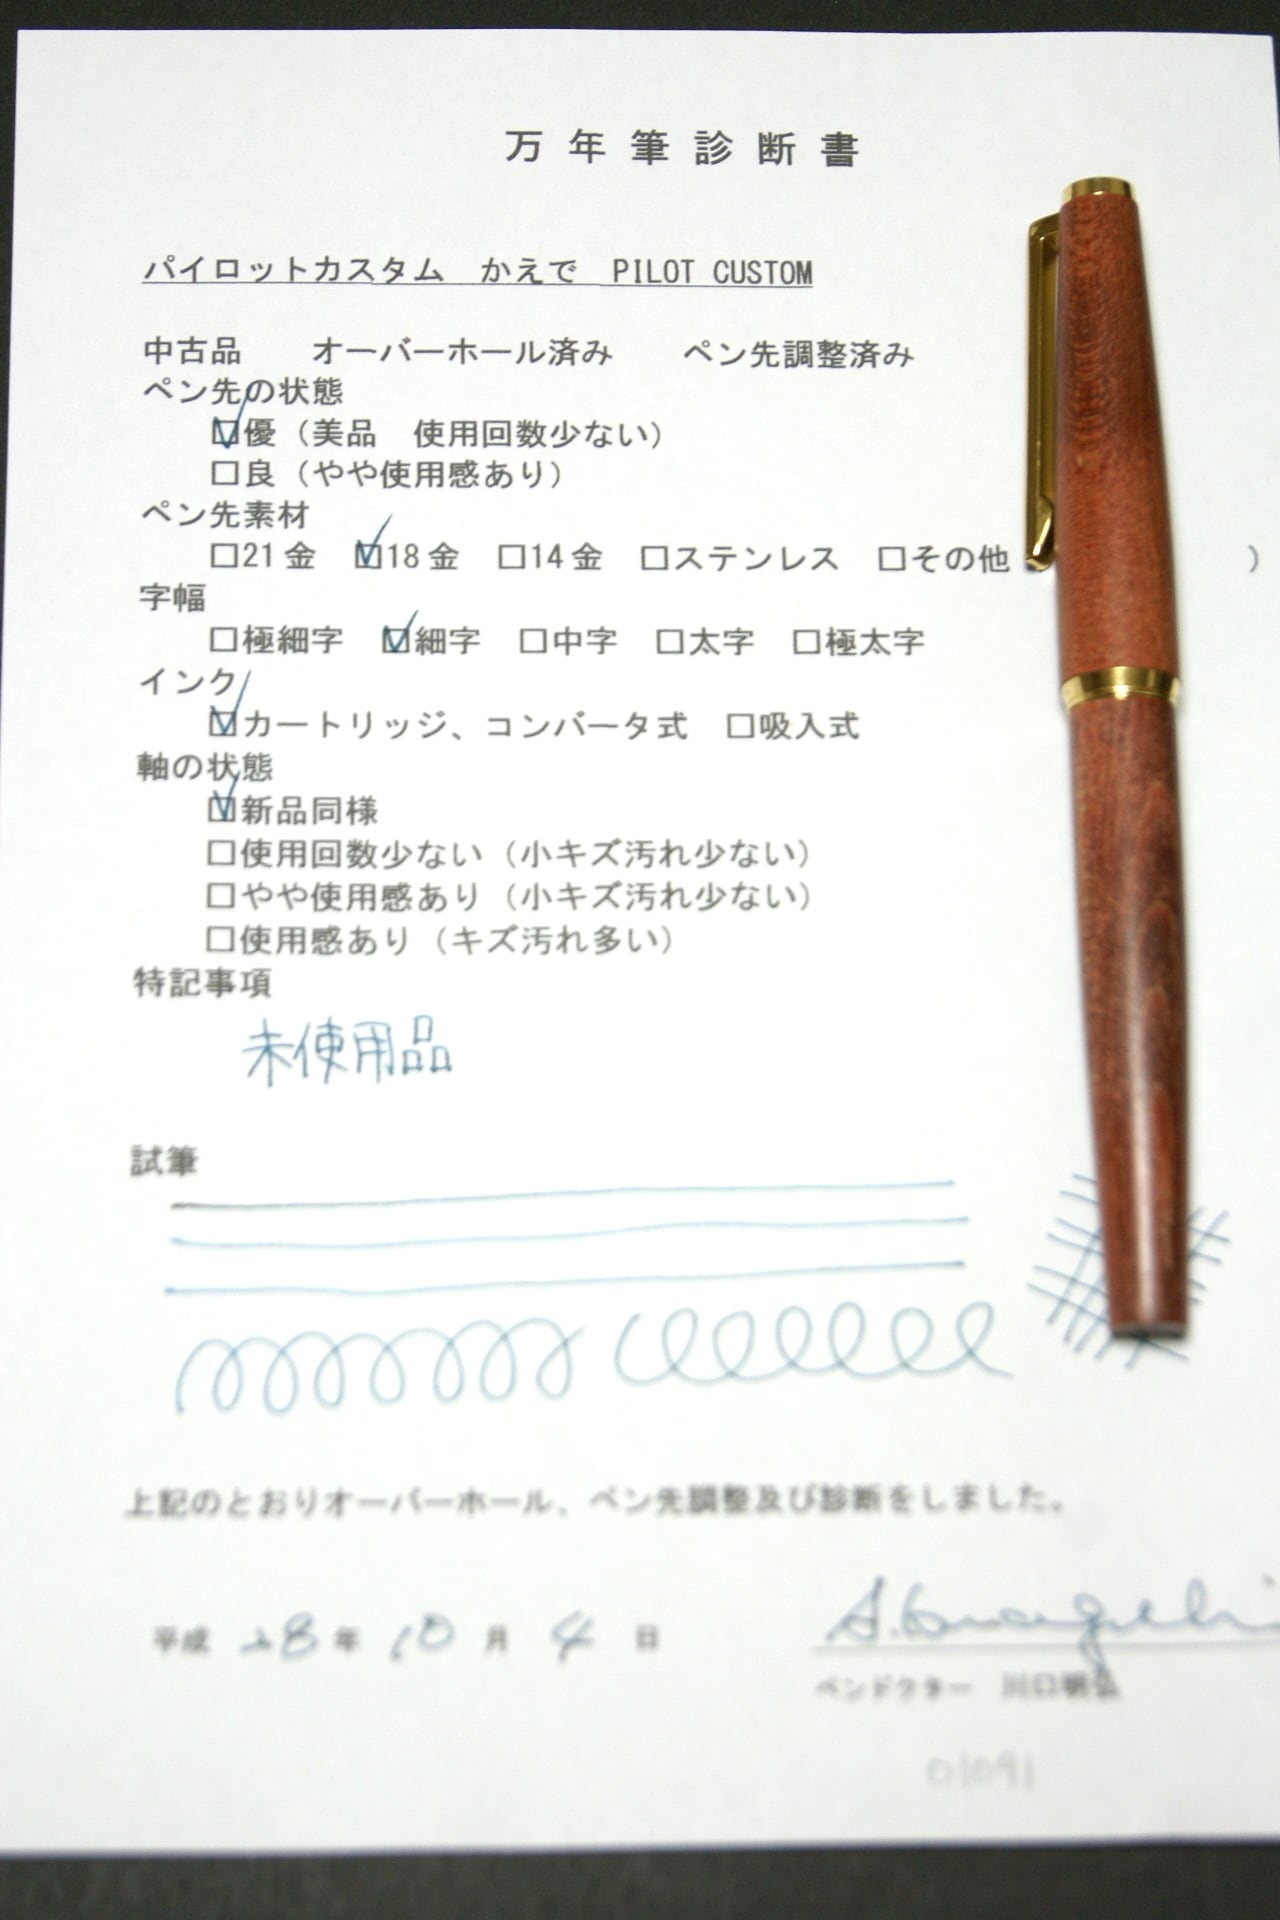 万年筆診断書
パイロットカスタム　かえで　PILOT CUSTOM
中古品　　オーバーホール済み　　ペン先調整済み
ペン先の状態
☑優（美品　使用回数少ない）
□良（やや使用感あり）
ペン先素材
□21金　☑18金　□14金　□ステンレス　□その他　）
字幅
□極細字　☑細字　□中字　□太字　□極太字
インク
☑カートリッジ、コンバータ式　□吸入式
軸の状態
☑新品同様
□使用回数少ない（小キズ汚れ少ない）
□やや使用感あり（小キズ汚れ少ない）
□使用感あり（キズ汚れ多い）
特記事項
未使用品
試筆
上記のとおりオーバーホール、ペン先調整及び診断をしました。
平成 28 年 10 月 4 日
ペンドクター　川口明弘
01091